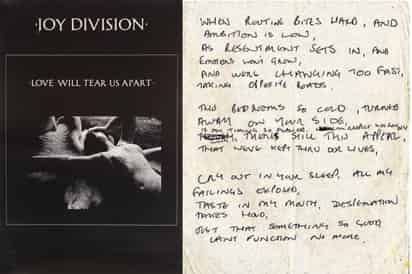 ·JOY DIVISION·
·LOVE WILL TEAR US APART·
WHEN ROUTINE BITES HARD, AND
AMBITION IS LOW,
AS RESENTMENT SETS IN, AND
EMOTIONS WON'T GROW,
AND WERE CHANGING TOO FAST,
TAKING OPPOSITE ROADS.
THIS BEDROOMS SO COLD, TURNED
AWAY ON YOUR SIDE,
IS MY TIMING SO FLAWED,
THERES STILL THIS APPEAL,
THAT WEVE KEPT THRU OUR LIVES,
CRY OUT IN YOUR SLEEP, ALL MY
FAILINGS EXPOSED,
TASTE IN MY MOUTH, DESPERATION
TAKES HOLD,
JUST THAT SOMETHING SO GOOD
CANT FUNCTION NO MORE.